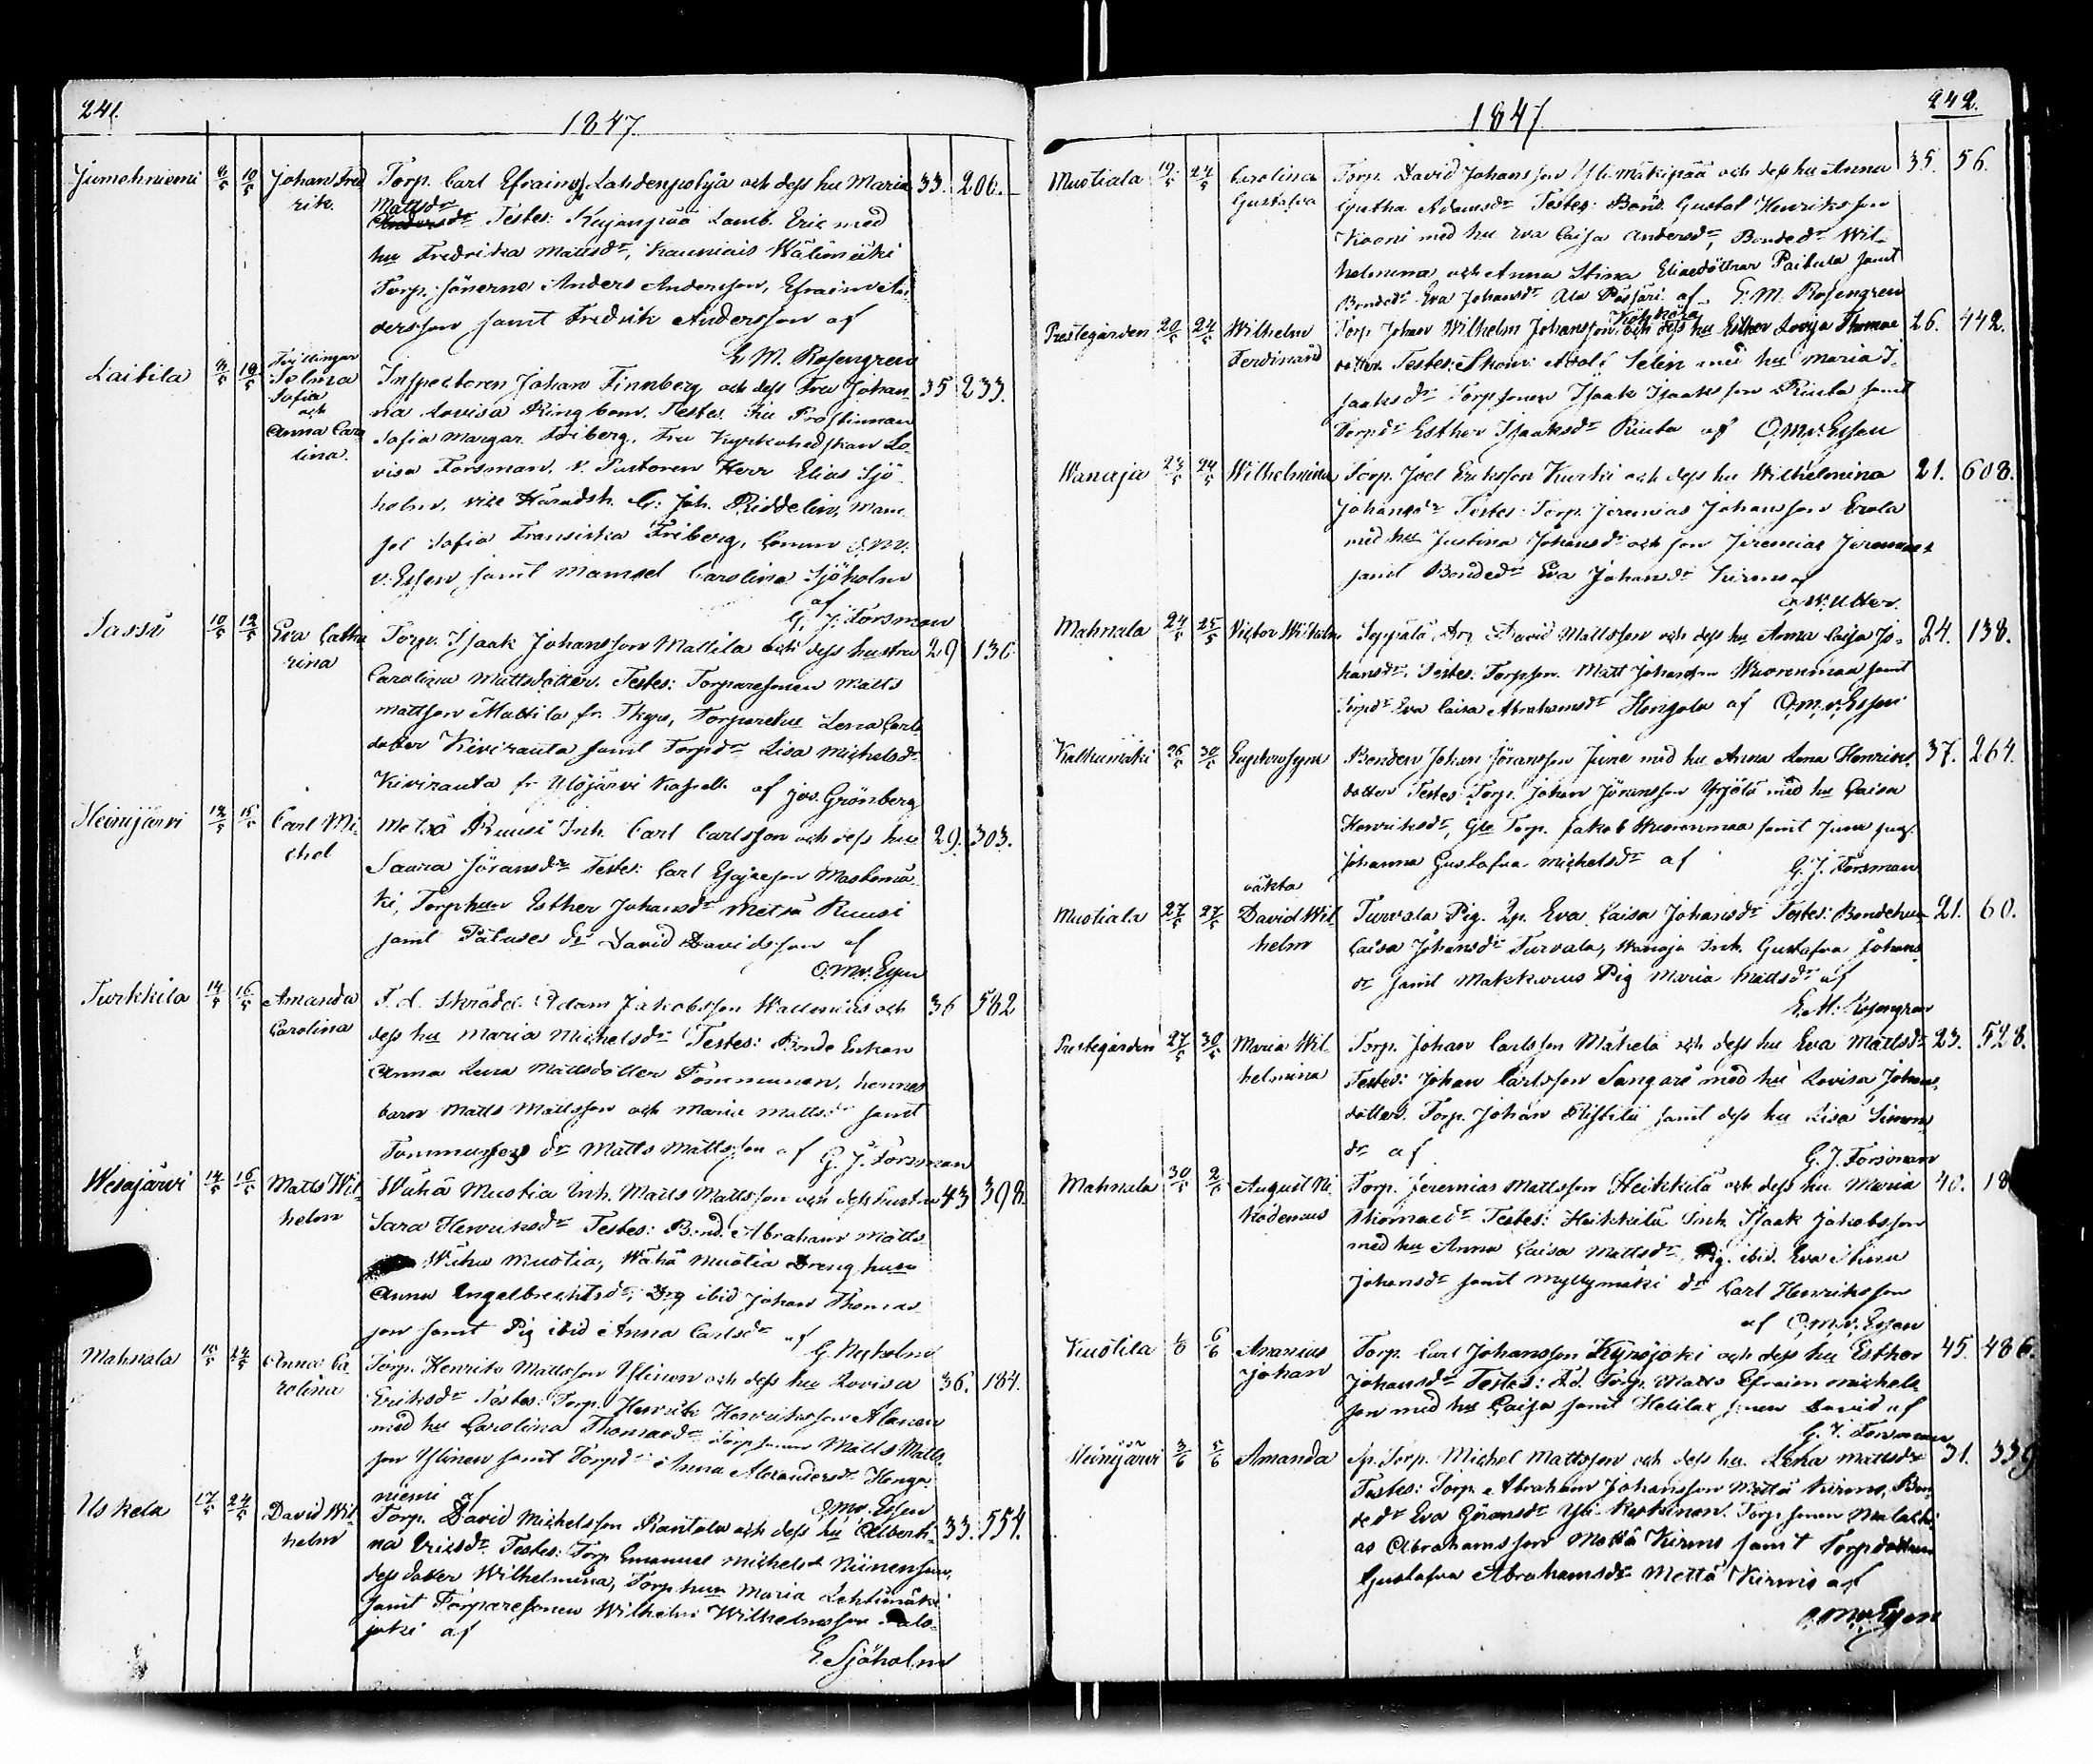 241.
1847.
Jumohniemi 8/5 10/5 Johan Fred Torp. Carl Efraims Lahdenpohja och dess hu Maria 33. 206.
rik. Mattsdr
Andersdr Testes: Kujanpää Lamb. Eric med
hu Fredrika Mattsdr, Kauniais Wälimäki
Torp. sönerne Anders Andersson, Efraim An
dersson samt Fredrik Andersson af
E. M. Rosengren
Laitila 8/5 10/5 Tvillingar
Selma Inspectoren Johan Finnberg och dess Fru Johan 35 233.
Sofia na Lovisa Ringbom. Testes. Fru Prostinnan
och
Anna Caro Sofia Margar. Friberg, Fru Kyrkoherdskan Lo
lina. visa Forsman, v. Pastoren Herr Elias Sjö
holm, vice Häradsh. Joh. Riddelin, Mam
sel Sofia Fransiska Friberg, O.M.
v. Essen samt Mamsel Carolina Sjöholm
af
G. J. Forsman
Sassi 10/5 12/5 Eva Catha Torp. Isaak Johansson Mattila och dess hustru 29 136
rina Carolina Mattsdotter. Testes: Torparesonen Matts
Mattson Mattila fr. Tkyro, Torparehu Lena Carls
dotter Kivirauta samt Torpdr Lisa Michelsdr
Kivirauta fr Ylöjärvi Kapell. af Jos. Grönberg
Heinijärvi 12/5 15/5 Carl Mi Metsä Ruusi Inh. Carl Carlsson och dess hu 29. 303.
chel Saara Göransdr Testes: Carl Esajasson Mastomä
ki, Torphun Esther Johansdr Metsä Ruusi
samt dr David Davidsson af
O.M.v. Essen
Turkkila 14/5 16/5 Amanda F.d. Skrädd. Adam Jakobsson Wallenius och 36 562
Carolina dess hu Maria Michelsdr Testes: Bonde Enkan
Anna Lena Mattsdotter Tommunen, hennes
barn Matts Mattsson och Maria Mattsdr samt
dr Matts Mattsson af G. J. Forsman
Wesajärvi 14/5 16/5 Matts Wil Wähä Muotia Inh. Matts Mattsson och dess hustru 43 398.
helm Sara Henriksdr Testes: Bond. Abraham Matts
Wähä Muotia, Wähä Muotia Dreng hun
Anna Engelbrechtsdr, Drg ibid Johan Thomas
son samt Pig ibid Anna Carlsdr af
G. Nyholm
Mahnala 15/5 24/5 Anna Ca Torp. Henrik Mattsson Ylinen och dess hu Lovisa 36. 184.
rolina Eriksdr Testes: Torp. Henrik Henriksson Alanen
med hu Carolina Thomaedr Torpsonen Matts Matts
son Ylinen samt Torpdr Anna Alexandersdr Honga
niemi af
O.M.v. Essen
Uskela 17/5 24/5 David Wil Torp. David Michelsson Rantala och dess hu Alberti 33. 554.
helm na Ericsdr. Testes: Torp Emanuel Michelss Niinensuu,
dess dotter Wilhelmina, Torp hun Maria Lehtimäki
samt Torparesonen Wilhelm Wilhelmsson Palo
joki af
E. Sjöholm
242.
1847
Muotiala 19/5 24/5 Carolina Torp. David Johansson Yli mäkipää och dess hu Anna 35. 56.
Gustafva Gretha Adamsdr Testes: Bond. Gustaf Henriksson
Kooni med hu Eva Caisa Andersdr, Bondedr Wil
helmina och Anna Stina Eliaedöttrar Paitula samt
Bondedr Eva Johansdr Ala Pässäri af E. M. Rosengren
Prestegården 20/5 24/5 Wilhelm Torp Johan Wilhelm Johansson och dess hu Esther Lovisa Thomae 26. 442.
Ferdinand dotter. Testes: Skom. Adolf Selin med hu Maria I
saaksdr Torpsonen Isaak Isaaksson Riuta samt
Torpdr Esther Isaaksdr Riuta af O.M.v. Essen
Wanaja 23/5 24/5 Wilhelmina Torp. Joel Eriksson Kurki och dess hu Wilhelmina 21. 608.
Johansdr Testes: Torp. Jeremias Johansson Erola
med hu Justina Johansdr och son Jeremias Jeremiass
samt Bondedr Eva Johansdr Kirmu af
Utter.
Mahnala 24/5 25/5 Victor Wilhelm Seppälä Drg David Mattsson och dess hu Anna Caisa Jo 24. 138.
hansdr. Testes. Torpson. Matt Johansson Wuorenmaa samt
Torpdr Eva Caisa Abrahamsdr Hongola af O.M.v. Essen
Kalkunmäki 26/5 30/5 Euphrosyne Bonden Johan Göransson June med hu Anna Lena Henriks 37. 264.
dotter Testes: Torp. Johan Göransson Yrjölä med hu Caisa
Henriksdr, Gla Torp. Jakob Wuorenmaa samt June pig.
Johanna Gustafva Michelsdr af G. J. Forsman
Muotiala 27/5 27/5 oäkta
David Wil Turvala Pig. Qp. Eva Caisa Johansdr Testes: Bondehun 21. 60.
helm Caisa Johansdr Turvala, Wanaja Inh. Gustafva Johans
dr samt Makkonus Pig Maria Mattsdr af
E. M. Rosengren
Prestegården 27/5 30/5 Maria Wil Torp. Johan Carlsson Mäkelä och dess hu Eva Mattsdr 23. 528.
helmina Testes: Johan Carlsson Sangari med hu Lovisa Johans
dotter. Torp. Johan Ristilä samt dess hu Lisa Simons
dr af
G. J. Forsman
Mahnala 30/5 2/6 August Ni Torp. Jeremias Mattsson Heikkilä och dess hu Maria 40. 18
kodemus Thomaedr Testes: Heikkilä Inh. Isaak Jakobsson
med hu Anna Caisa Mattsdr, Pig. ibid. Eva Stina
Johansdr samt Myllymäki dr Carl Henriksson
af O.M.v. Essen
Kuotila 1/6 6/6 Ananias Torp. Carl Johansson Kyrojoki och dess hu Esther 45. 486.
Johan Johansdr Testes: F.d. Torp. Matts Efraim Michels
son med hu Caisa samt sonen David af
G. J. Forsman
Heinijärvi 3/6 5/6 Amanda Sp. Torp. Michel Mattsson och dess hu. Lena Mattsdr 31. 339
Testes: Torp. Abraham Johansson Mettä Kirmu, Bon
dedr Eva Göransdr Yli Keskinen. Torpsonen Malachi
as Abrahamsson Mettä Kirmu samt Torpdottren
Gustafva Abrahamsdr Mettä Kirmu af
O.M.v. Essen